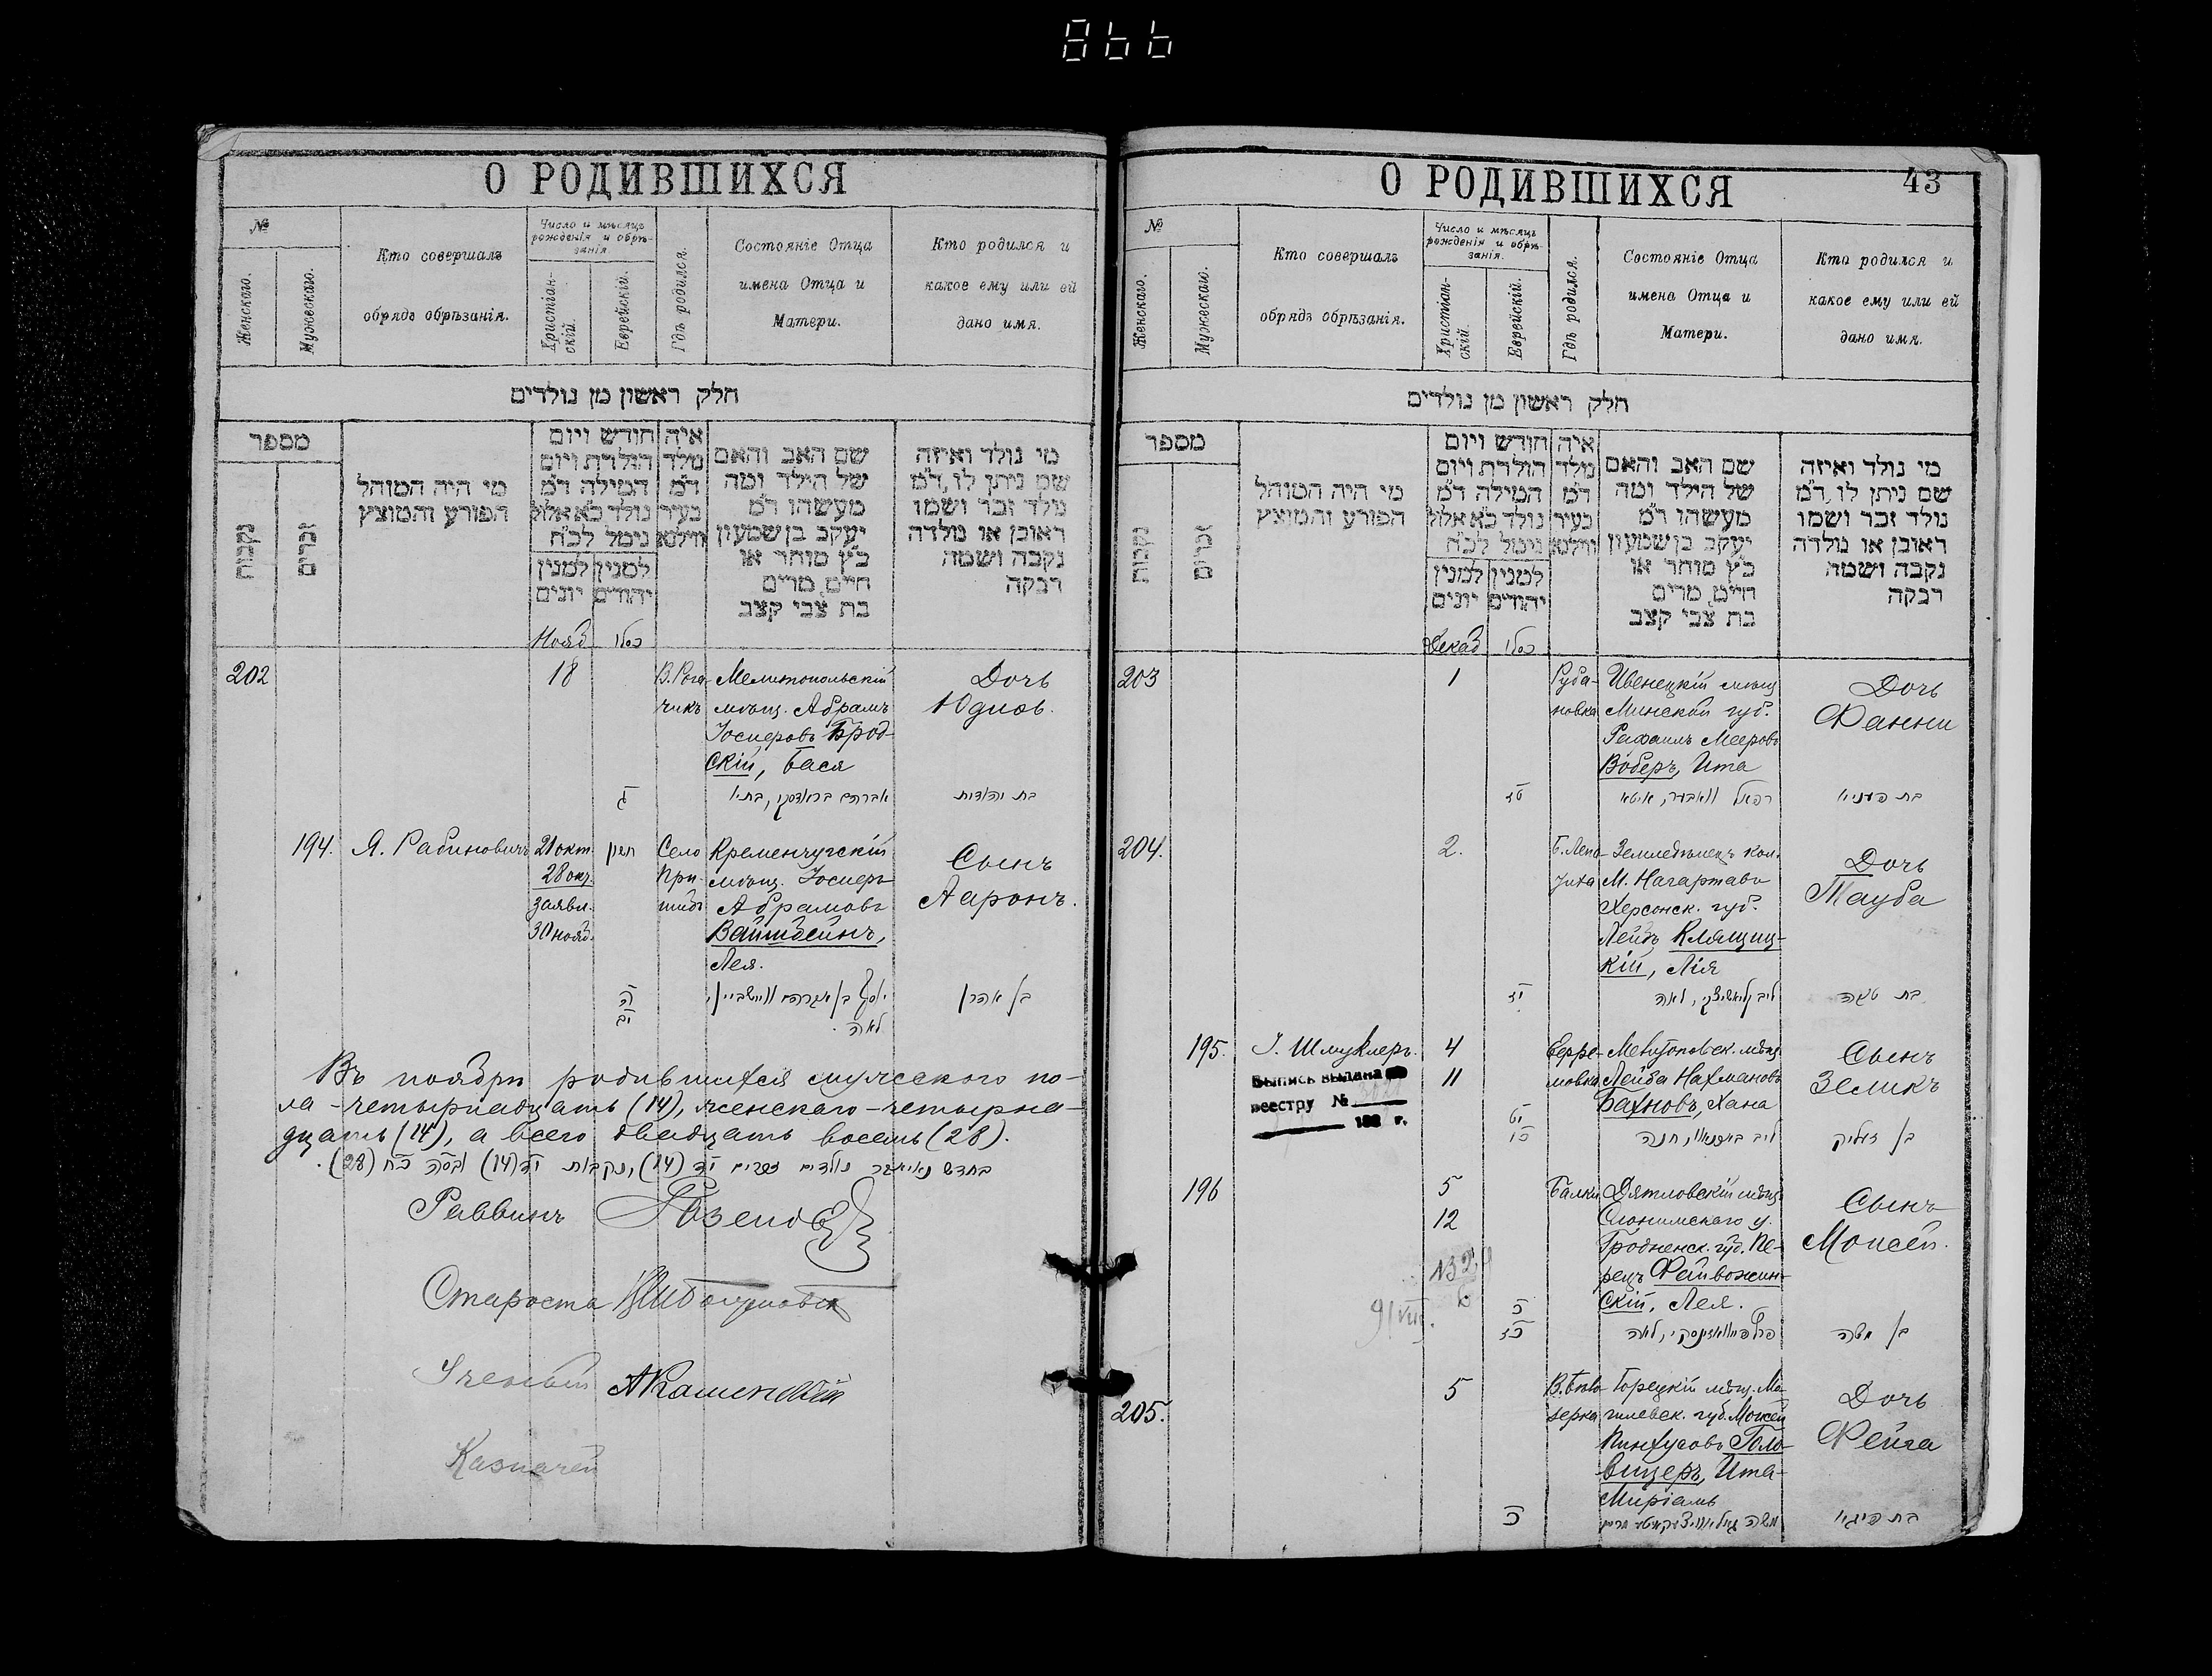 866
О РОДИВШИХСЯ
№
Женскаго.
Мужескаго.
Кто совершалъ
обрядъ обрѣзанія.
Число и мѣсяцъ
рожденія и обрѣ-
занія.
Христіан-
скій.
Еврейскій.
Гдѣ родился.
Состояніе Отца
имена Отца и
Матери.
Кто родился и
какое ему или ей
дано имя.
חלק ראשון מן נולדים
מספר
נקבות
זכרים
מי היה המוהל
הפורע והמוצץ
חודש ויום
הולדת ויום
המילה ד״מ
נולד כ״א אלול
נימל לכ״ח
למנין למנין
יהודים יונים
איה
נולד
ד״מ
בעיר
ווילנא
שם האב והאם
של הילד ומה
מעשהו ד״מ
יעקב בן שמעון
כ״ץ סוחר או
חיים, מרים
בת צבי קצב
מי נולד ואיזה
שם ניתן לו, ד״מ
נולד זכר ושמו
ראובן או נולדה
נקבה ושמה
רבקה
Нояб. כסלו
202
18
В. Рога-
чикъ
Мелитопольскій
мѣщ. Абрамъ
Іосиповъ Брод-
скій, Бася
Дочь
Юдиѳь.
ג
אברהם בראדסקי, בתיו
בת יהודית
194.
Я. Рабиновичъ
21 окт.
28 ок.
заявл.
30 нояб.
חשון
Село
При-
шибъ
Кременчугскій
мѣщ. Іосиръ
Абрамовъ
Вайтбейнъ,
Лея.
Сынъ
Ааронъ.
ה
יב
יוסף בן אברהם ווייטביין,
לאה.
בן אהרן
Въ ноябрѣ родившихся мужескаго по-
ла - четырнадцать (14), женскаго - четырна-
дцать (14), а всего двадцать восемь (28).
בחדש נאיאבר נולדים זכרים יד (14), נקבות יד (14) ובסה כח (28).
Раввинъ
Староста
Ученый АКаменскій
Казначей
О РОДИВШИХСЯ
43
№
Женскаго.
Мужескаго.
Кто совершалъ
обрядъ обрѣзанія.
Число и мѣсяцъ
рожденія и обрѣ-
занія.
Христіан-
скій.
Еврейскій.
Гдѣ родился.
Состояніе Отца
имена Отца и
Матери.
Кто родился и
какое ему или ей
дано имя.
חלק ראשון מן נולדים
מספר
נקבות
זכרים
מי היה המוהל
הפורע והמוצץ
חודש ויום
הולדת ויום
המילה ד״מ
נולד כ״א אלול
נימל לכ״ח
למנין למנין
יהודים יונים
איה
נולד
ד״מ
בעיר
ווילנא
שם האב והאם
של הילד ומה
מעשהו ד״מ
יעקב בן שמעון
כ״ץ סוחר או
חיים, מרים
בת צבי קצב
מי נולד ואיזה
שם ניתן לו, ד״מ
נולד זכר ושמו
ראובן או נולדה
נקבה ושמה
רבקה
Декаб. כסלו
203
1
Руба-
новка
Ивенецкій мѣщ
Минской губ.
Рафаилъ Мееровъ
Воберъ, Ита
Дочь
Фанни
טז
רפאל וואבער, איטא
בת פאניא
204.
2.
Б. Лепа-
тиха
Земледѣлецъ кол.
М. Нагартавъ
Херсонск. губ.
Лейбъ Клящиц-
кій, Лія
Дочь
Тауба
יז
בת טאבה
195.
І. Шмуклеръ.
4
11
Ефре-
мовка
Мелитопольск. мѣщ.
Лейба Нахмановъ
Бахновъ, Хана
Сынъ
Зеликъ
Выпись выдана по
реестру №
188 г.
יט
כו
בן זעליק
196
5
12
Балки
Дятловскій мѣщ.
Слонимскаго у.
Гродненск. губ. Пе-
рецъ Файвожин-
скій, Лея.
Сынъ
Моисей.
כ
כז
בן משה
205.
5
В. Бѣло-
зерка
Горецкій мѣщ. Мо-
гилевск. губ. Мовшей
Пинхусовъ Голо-
вицеръ, Ита-
Миріамъ
Дочь
Фейга
כ
בת פייגא